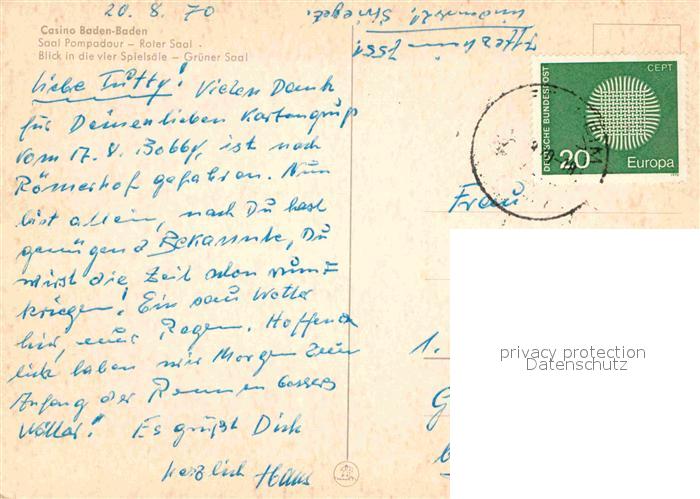 20. 8. 70
Casino Baden-Baden
Saal Pompadour – Roter Saal
Blick in die vier Spielsäle – Grüner Saal
Liebe Tutty! Vielen Dank
für Deinen lieben Kartengruß
vom 17. 8. Bobby, ist nach
Römerhof gefahren. Nun
bist allein, nach Du hast
genügend Bekannte, Du
wirst die Zeit schon rum
kriegen! Ein sau Wetter
hier, nur Regen. Hoffent
lich haben wir Morgen zum
Anfang der Rennen besseres
Wetter! Es grüßt Dich
herzlich Hans
DEUTSCHE BUNDESPOST
CEPT
20
Europa
Frau
1.
privacy protection
Datenschutz